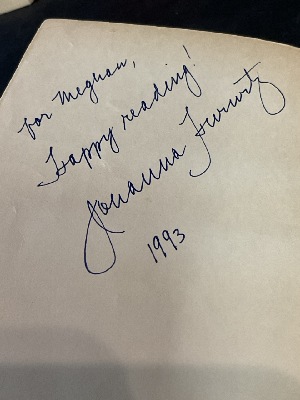 for Meghan,
Happy reading!
Johanna Hurwitz
1993